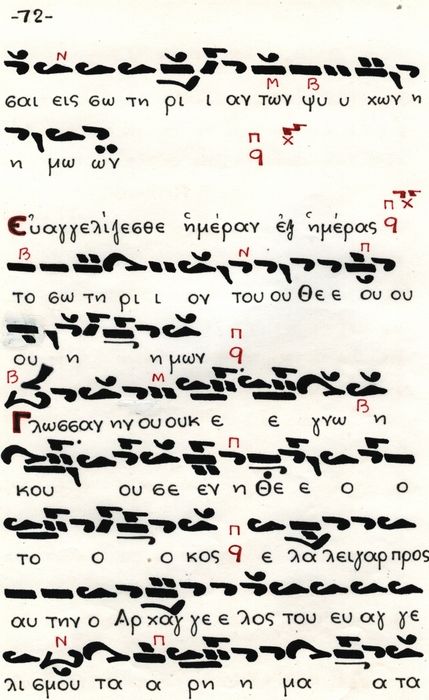 -72-
Ν
Μ Β
σαι εις σω τη ρι ι αν των ψυ υ χων η
η μω ων
π q χ
Ευαγγελίζεσθε ἡμέραν ἐξ ἡμέρας π q χ
Β Ν Π
το σω τη ρι ι ον του ου Θε ε ου ου
ου η η μων Π q
Β Μ Β
Γλωσσαν ην ου ουκ ε ε γνω η
Π
κου ου σε εν η Θε ε ο ο
το ο ο κος Π q ε λα λει γαρ προς
αυ την ο Αρ χαγ γε ε λος του ευ αγ γε
Ν Π
λι σμου τα α ρη η μα α τα